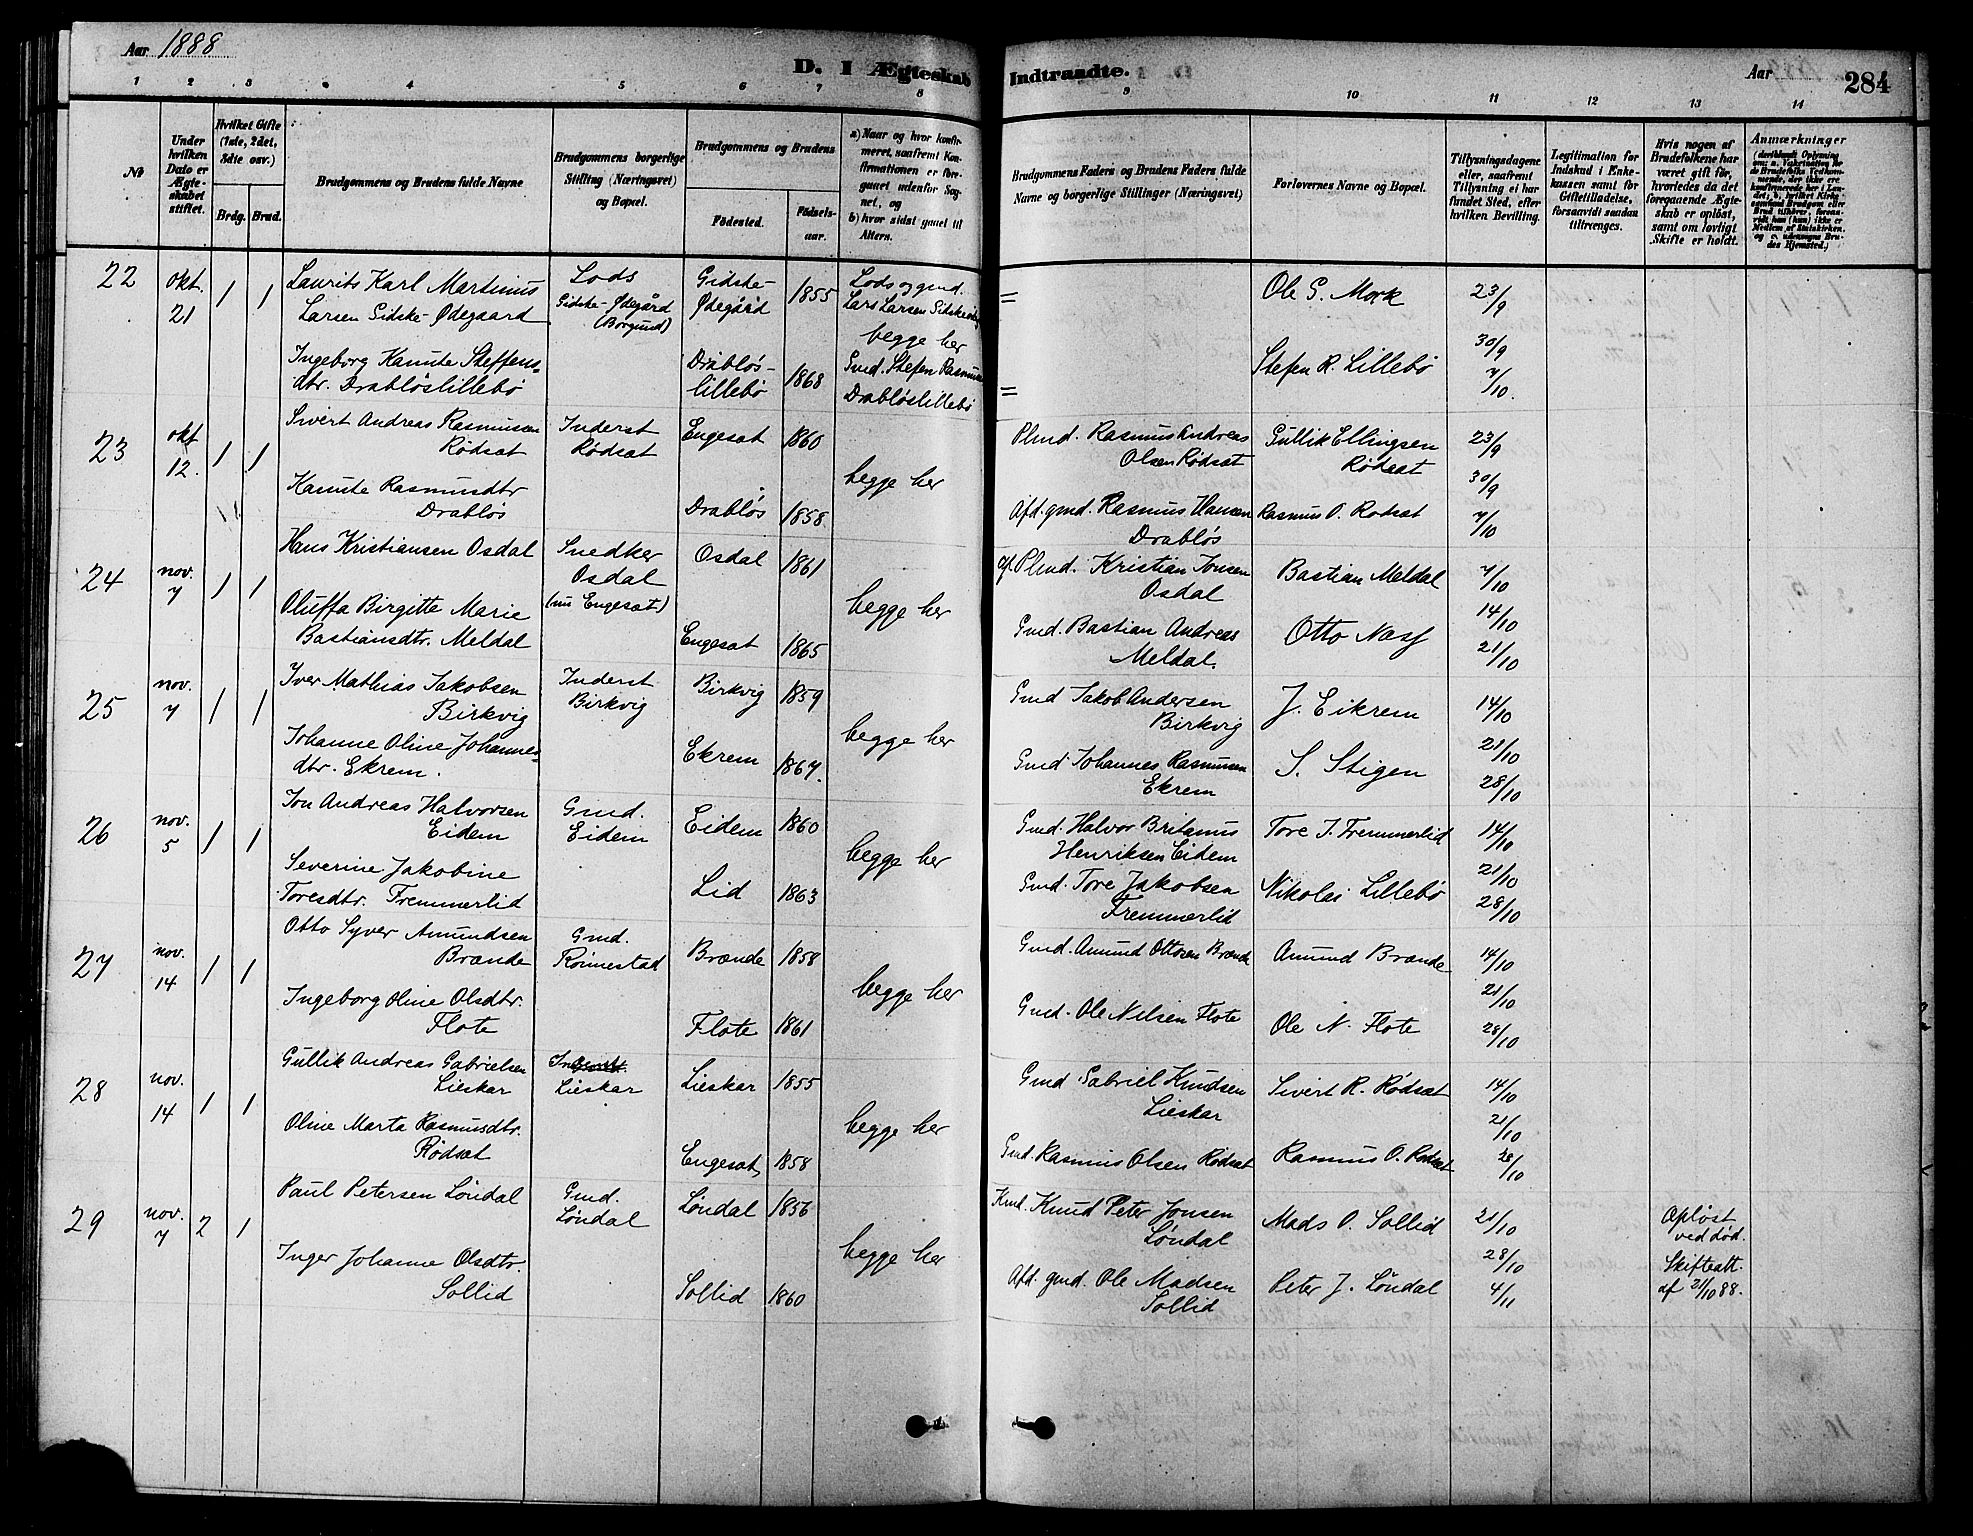 Aar 1888
D. I Ægteskab Indtraadte.
Aar
284
1 2 3 4 5 6 7 8 9 10 11 12 13 14
No
Under hvilken Dato er Ægteskabet stiftet.
Hvilket Gifte (1ste, 2det, 3die osv.)
Brdg. Brud.
Brudgommens og Brudens fulde Navne
Brudgommens borgerlige Stilling (Næringsvei) og Bopæl.
Brudgommens og Brudens
Fødested.
Fødselsaar.
a) Naar og hvor konfirmeret, saafremt Konfirmationen er foregaaet udenfor Sognet, og
b) hvor sidst gaaet til Alters.
Brudgommens Faders og Brudens Faders fulde Navne og borgerlige Stillinger (Næringsvei)
Forlovernes Navne og Bopæl.
Tillysningsdagene eller, saafremt Tillysning ei har fundet Sted, efter hvilken Bevilling.
Legitimation for Indskud i Enkekassen samt for Giftetilladelse, forsaavidt saadan tiltrænges.
Hvis nogen af Brudefolkene har været gift før, hvorledes da det foregaaende Ægteskab er opløst, samt om lovligt Skifte er holdt.
Anmærkninger
22 okt. 21 1 1
Laurits Karl Martinius
Larsen Gidske-Ødegaard
Lods
Gidske-Ødegård
(Borgund)
Gidske-
Ødegård 1855
Lods og gmd.
Lars Larsen Gidskeødeg
=
Ole G. Mork
23/9
begge her
Ingeborg Kanute Steffens-
dtr. Drabløslillebø
Drabløs-
lillebø 1868
Gmd. Stefen Rasmus
Drabløslillebø
=
Stefen R. Lillebø
30/9
7/10.
23 okt 12. 1 1
Sivert Andreas Rasmussen
Rødsat
Inderst
Rødsat
Engesat 1860
begge her
Plmd. Rasmus Andreas
Olsen Rødsat
Gullik Ellingsen
Rødsat
23/9
30/9
Kanute Rasmusdtr
Drabløs
Drabløs 1858.
Afd. gmd. Rasmus Hansen
Drabløs
Rasmus O. Rødsat
7/10
24 nov. 7 1 1
Hans Kristiansen Osdal
Snedker
Osdal
(nu Engesat)
Osdal 1861
begge her
gl. Plmd. Kristian Jonsen
Osdal
Bastian Meldal
7/10
14/10
Oluffa Birgitte Marie
Bastiansdtr. Meldal
Engesat 1865
Gmd. Bastian Andreas
Meldal.
Otto Næss
21/10
25 nov. 7 1 1
Iver Mathias Jakobsen
Birkvig
Inderst
Birkvig
Birkvig 1859
begge her
Gmd Jakob Andersen
Birkvig
J. Eikrem
14/10
21/10
Johanne Oline Johannes-
dtr. Ekrem.
Ekrem 1867.
Gmd Johannes Rasmussen
Ekrem
S. Stigen
28/10
26 nov. 5 1 1
Jon Andreas Halvorsen
Eidem
Gmd.
Eidem
Eidem 1860
begge her
Gmd. Halvor Britanus
Henriksen Eidem
Tore J. Fremmerlid
14/10
21/10
Severine Jakobine
Toresdtr. Fremmerlid
Lid 1863
Gmd. Tore Jakobsen
Fremmerlid
Nikolai Lillebø
28/10
27 nov. 14 1 1
Otto Syver Amundsen
Brænde
Gmd.
Rønnestad
Brænde 1858
begge her
Gmd. Amund Ottosen Brænde
Amund Brænde
14/10
21/10
Ingeborg Oline Olsdtr.
Flote
Flote 1861
Gmd. Ole Nilsen Flote
Ole N. Flote
28/10
28 nov. 14 1 1
Gullik Andreas Gabrielsen
Lieskar
Lieskar
Lieskar 1855
begge her
Gmd Gabriel Knudsen
Lieskar
Sivert R. Rødsat
14/10
21/10
Oline Marta Rasmusdtr.
Rødsat
Engesat 1858
Gmd. Rasmus Olsen Rødsat
Rasmus O. Rødsat
28/10
29 nov. 7 2 1
Paul Petersen Løndal
Gmd.
Løndal
Løndal 1856
begge her
Kmd. Knud Peter Jonsen
Løndal
Mads O. Sollid
21/10
28/10
Opløst
ved død.
Skifteatt.
af 21/10 88.
Inger Johanne Olsdtr.
Sollid
Sollid 1860
Afd. gmd. Ole Madsen
Sollid
Peter J. Løndal
4/11